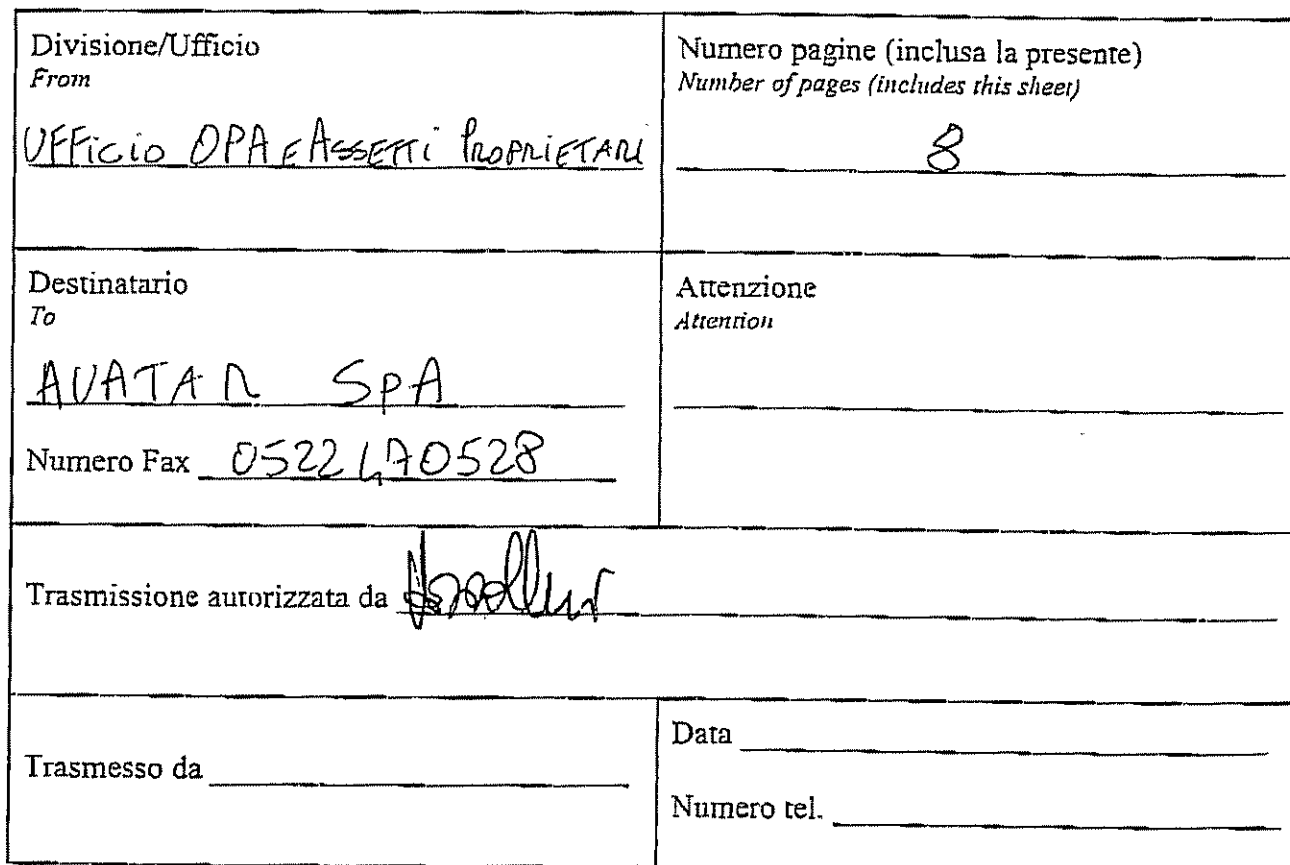 Divisione/Ufficio
From
UFFicio OPA E ASSETTi PROPRIETARI
Numero pagine (inclusa la presente)
Number of pages (includes this sheet)
8
Destinatario
To
AVATAR SpA
Numero Fax 0522 470528
Attenzione
Attention
Trasmissione autorizzata da
Trasmesso da
Data
Numero tel.